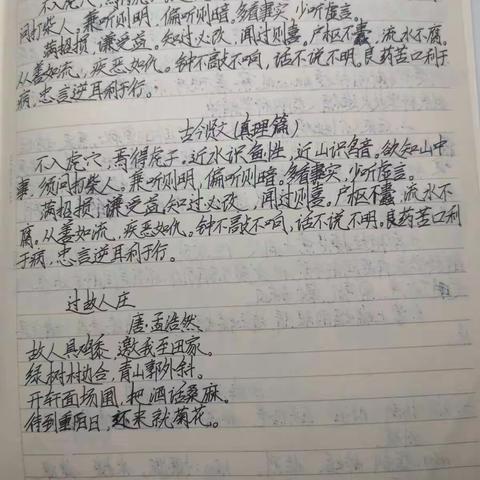 问打柴人。兼听则明,偏听则暗。多看事实,少听虚言。
满招损,谦受益。知过必改,闻过则喜。户枢不蠹,流水不腐。
从善如流,疾恶如仇。钟不敲不响,话不说不明。良药苦口利于
病,忠言逆耳利于行。
古今贤文(真理篇)
不入虎穴,焉得虎子。近水识鱼性,近山识鸟音。欲知山中
事,须问打柴人。兼听则明,偏听则暗。多看事实,少听虚言。
满招损,谦受益。知过必改,闻过则喜。户枢不蠹,流水不
腐。从善如流,疾恶如仇。钟不敲不响,话不说不明。良药苦口利
于病,忠言逆耳利于行。
过故人庄
唐·孟浩然
故人具鸡黍,邀我至田家。
绿树村边合,青山郭外斜。
开轩面场圃,把酒话桑麻。
待到重阳日,还来就菊花。